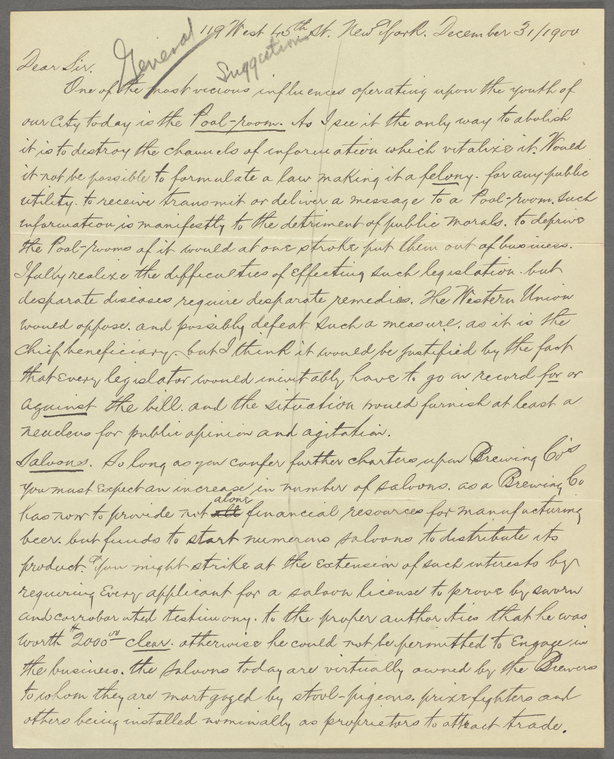 119 West 45th St. New York. December 31/1900
General
Suggestions
Dear Sir.
One of the most vicious influences operating upon the youth of
our city today is the Pool-room. As I see it the only way to abolish
it is to destroy the channels of information which vitalize it. Would
it not be possible to formulate a law making it a felony. for any public
utility. to receive transmit or deliver a message to a Pool-room. Such
information is manifestly to the detriment of public morals. to deprive
the Pool-rooms of it would at one stroke put them out of business.
I fully realize the difficulties of effecting such legislation. but
desparate diseases require desparate remedies. The Western Union
would oppose. and possibly defeat such a measure. as it is the
chief beneficiary. but I think it would be justified by the fact
that every legislator would inevitably have to go on record for or
against the bill. and the situation would furnish at least a
neucleus for public opinion and agitation.
Saloons. So long as you confer further charters upon Brewing Co's
you must expect an increase in number of saloons. as a Brewing Co
alone
has now to provide not all financial resources for manufacturing
beer. but funds to start numerous saloons to distribute its
product. You might strike at the extension of such interests by
requiring every applicant for a saloon license to prove by sworn
and corroborated testimony. to the proper authorities that he was
worth $2000.00 clear. otherwise he could not be permitted to engage in
the business. the saloons today are virtually owned by the Brewers
to whom they are mortgaged by stool-pigeons, prize fighters and
others being installed nominally as proprietors to attract trade.